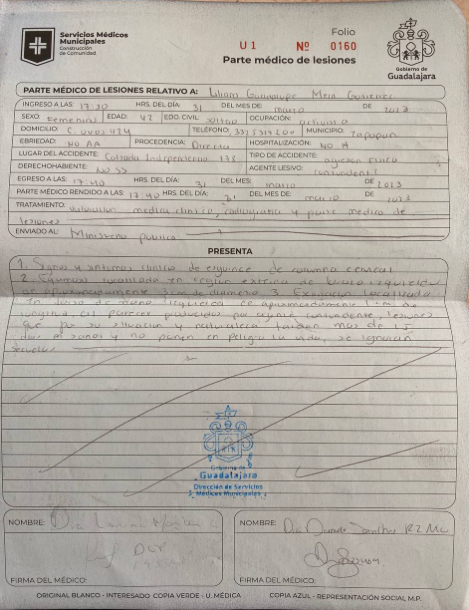 Servicios Médicos
Municipales
Construcción
de Comunidad
Folio
U 1 Nº 0160
Parte médico de lesiones
Gobierno de
Guadalajara
PARTE MÉDICO DE LESIONES RELATIVO A: Guadalupe
INGRESO A LAS: 17:30 HRS. DEL DÍA: 31 DEL MES DE: marzo DE
SEXO: Femenino EDAD: 42 EDO. CIVIL: OCUPACIÓN:
DOMICILIO: TELÉFONO: MUNICIPIO: Zapopan
EBRIEDAD: No AA PROCEDENCIA: Directa HOSPITALIZACIÓN: No
LUGAR DEL ACCIDENTE: Calzada Independencia TIPO DE ACCIDENTE: agresion Fisica
DERECHOHABIENTE: No AGENTE LESIVO: contundente
EGRESO A LAS: 17:40 HRS. DEL DÍA: 31 DEL MES: marzo DE 2023
PARTE MÉDICO RENDIDO A LAS: 17:40 HRS. DEL DÍA: 31 DEL MES DE: marzo DE 2023
TRATAMIENTO: valoracion medica clinica, radiografia y parte medico de
lesiones
ENVIADO AL: Ministerio publico
PRESENTA
1. Signos y sintomas clinicos de esguince de columna cervical
2. Equimosis localizada en region externa de brazo izquierdo
de aproximadamente 3cm de diametro 3. Excoriacion localizada
en dorso de mano izquierda de aproximadamente 1cm de
longitud, al parecer producidas por agente contundente, lesiones
que por su situacion y naturaleza tardan mas de 15
dias en sanar y no ponen en peligro la vida, se ignoran
secuelas
Gobierno de
Guadalajara
Dirección de Servicios
Médicos Municipales
NOMBRE:
FIRMA DEL MÉDICO:
NOMBRE:
FIRMA DEL MÉDICO:
ORIGINAL BLANCO - INTERESADO COPIA VERDE - U. MÉDICA COPIA AZUL - REPRESENTACIÓN SOCIAL M.P.